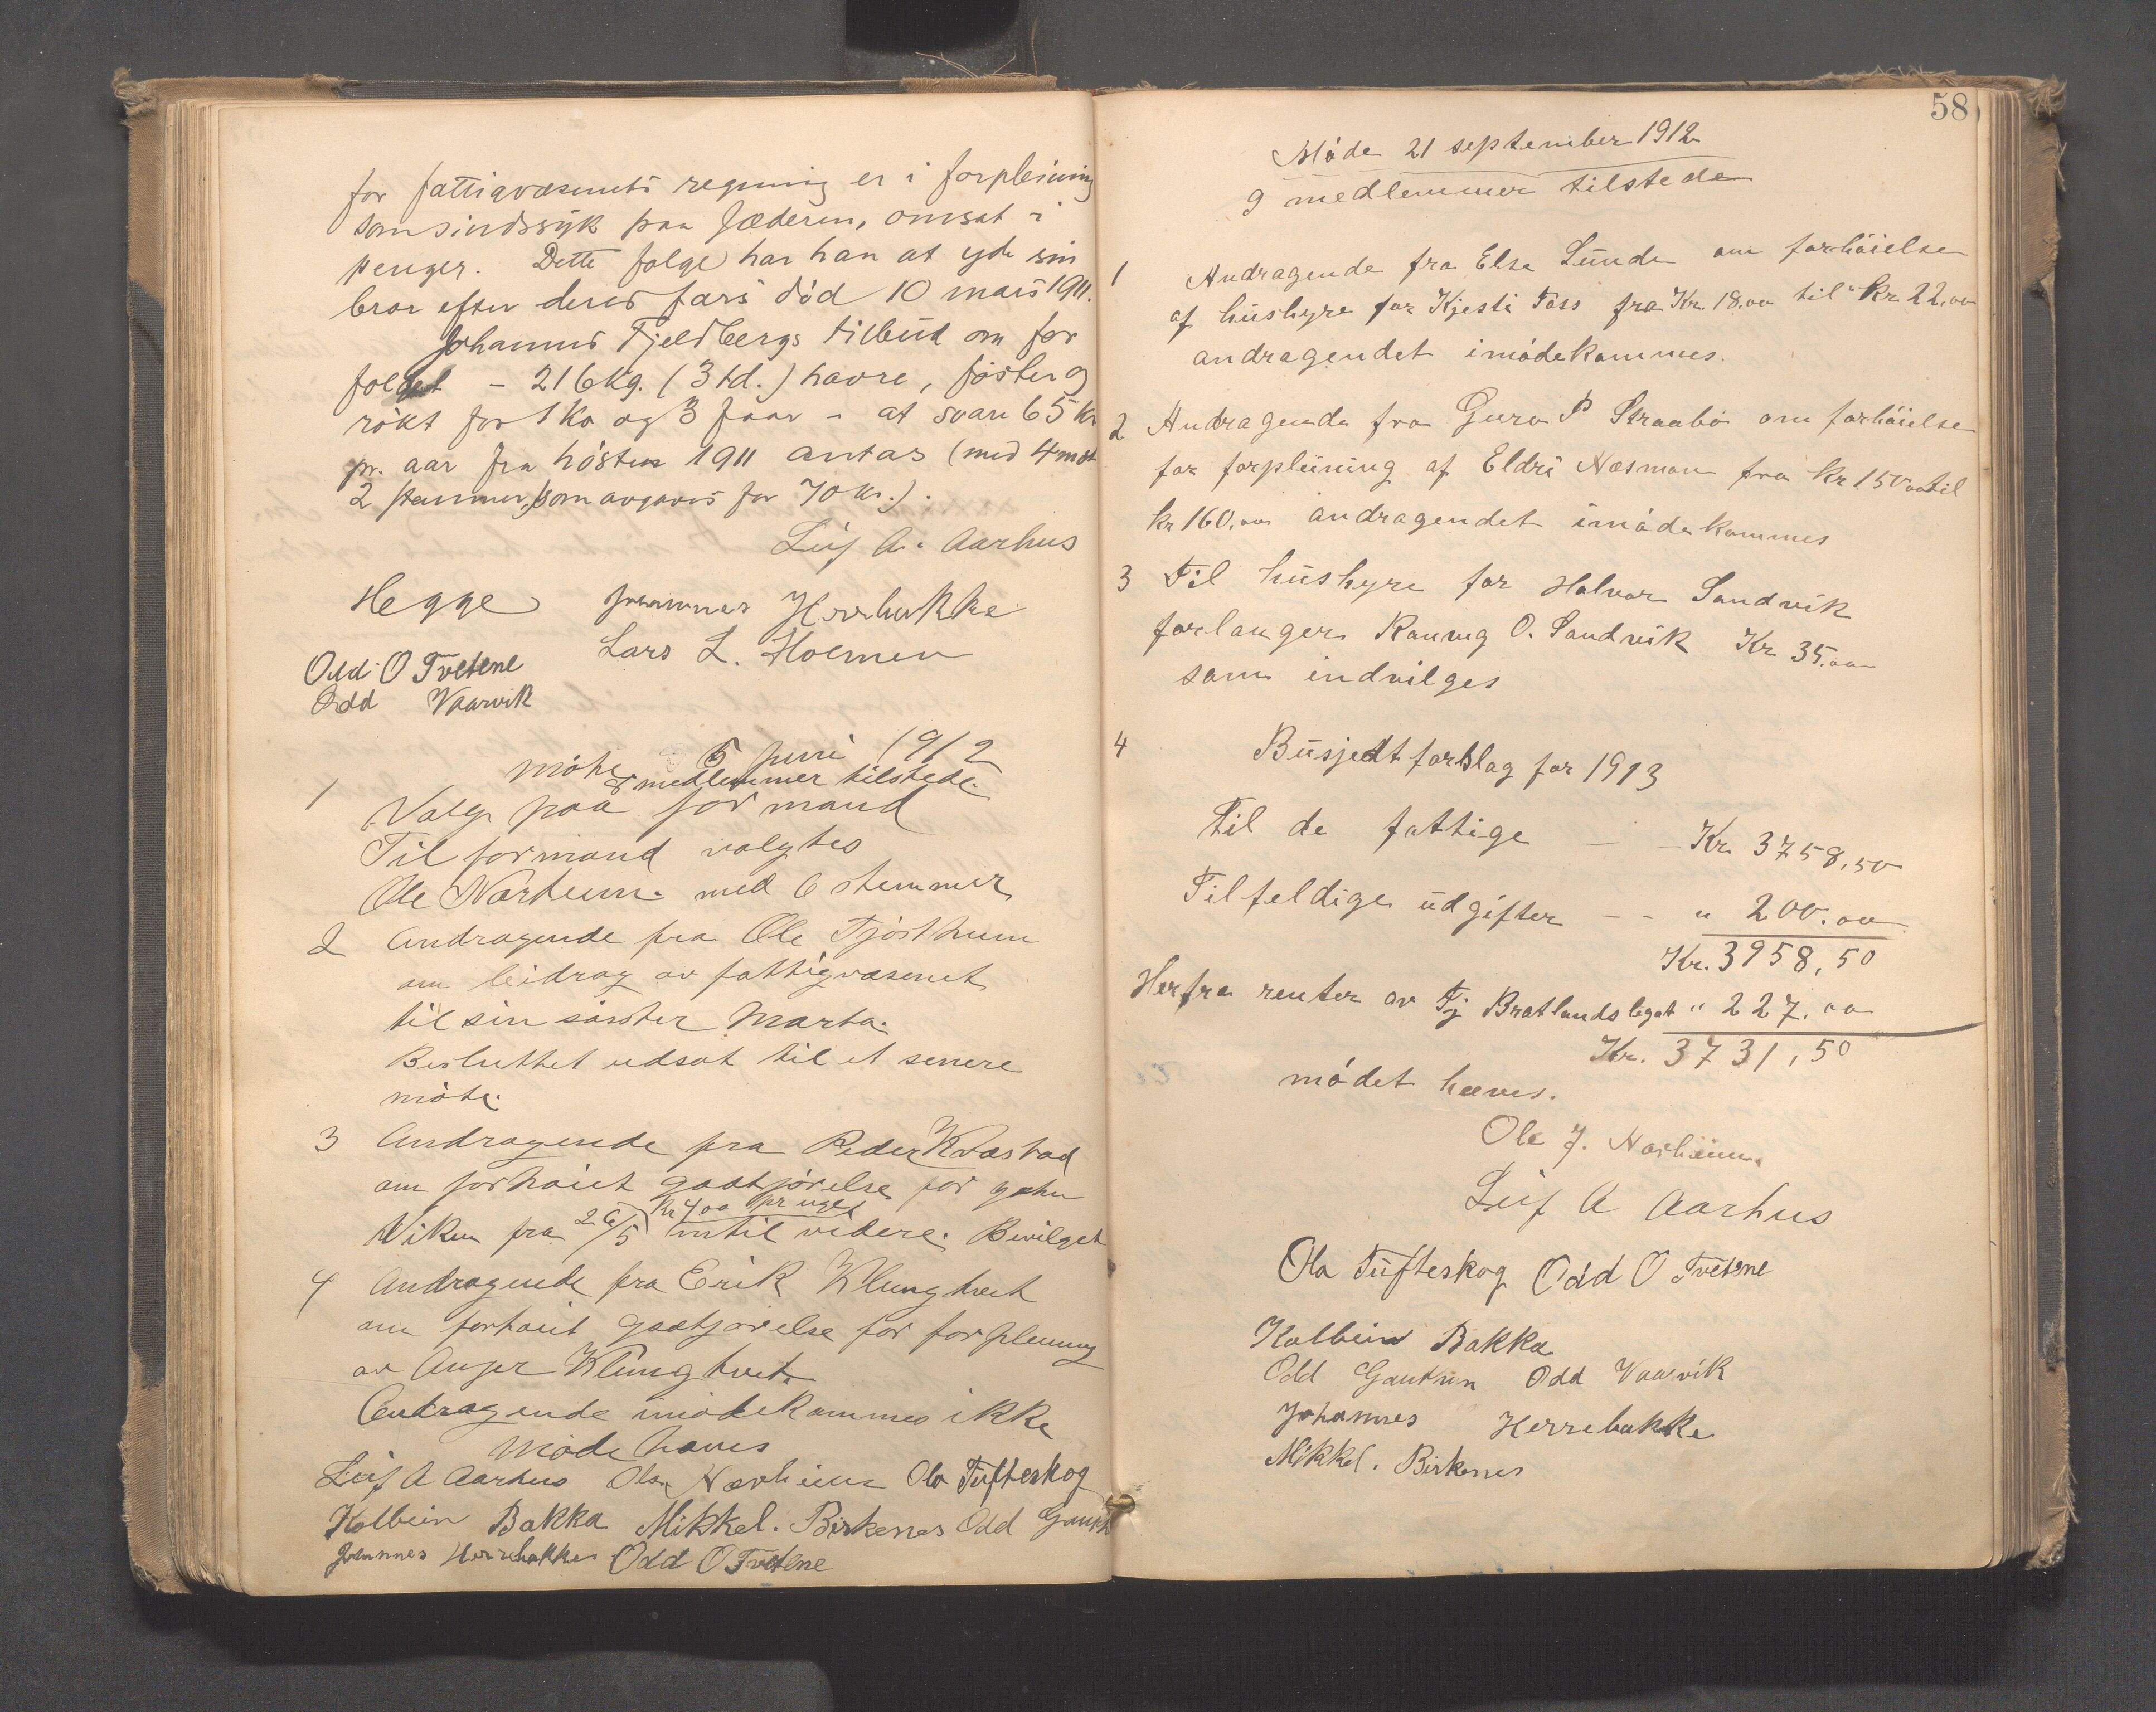 for fattigvæsenets regning er i forpleining
som sindssyk paa Jæderen, omsat i
penger. Dette følge har han at yde sin
bror efter deres fars död 10 mars 1911.
Johannes Fjeldbergs tilbud om for
følget - 216 kg. (3 td.) havre, foster og
rökt for 1 ko og 3 faar - at svare 65 kr
pr. aar fra hösten 1911 antas (med 4 mot
2 stemmer, som avgaves for 70 kr.).
Leif A. Aarhus
Hegge Johannes Herrebakke
Lars L. Holmen
Odd O Tvetene
Odd Vaarvik
möte 5 Juni 1912
8 medlemmer tilstede.
1 Valg paa formand
Til formand valgtes
Ole Norheim med 6 stemmer
2 Andragende fra Ole Tjostheim
om bidrag av fattigvæsenet
til sin söster Marta.
Besluttet udsat til et senere
möte.
3 Andragende fra Peder Kvastad
om forhöiet godtjörelse for
kr 4,00 pr uge
Viken fra 26/5 intil videre. Bevilget
4 Andragende fra Erik Klungtveit
om forhöiet godtjörelse for forpleining
av Klungtveit.
Andragende imötekommes ikke
Möde hæves
Leif A Aarhus Ola Norheim Ola Tufteskog
Kolbein Bakka Mikkel. Birkenes Odd
Johannes Herrebakke Odd O Tvetene
58
Möde 21 september 1912
9 medlemmer tilstede
1 Andragende fra Else Lunde om forhöielse
af hüshyre for Kjesti Foss fra Kr. 18,00 til kr. 22,00
andragendet imödekommes.
2 Andragende fra Guro P Straabö om forhöielse
for forpleining af Eldri Næsmoen fra kr 150,00 til
kr 160,00 andragendet imödekommes
3 Til hüshyre for Halvor Sandvik
forlanger Ranvig O. Sandvik Kr 35,00
som indvilges
4 Büsjedt forslag for 1913
Til de fattige - - Kr. 3758,50
Tilfeldige üdgifter - - " 200.00
Kr. 3958,50
Herfra renter av Tj Bratlandslegat " 227,00
Kr. 3731,50
mödet hæves.
Ole J. Norheim.
Leif A Aarhus
Ola Tüfteskog Odd O Tvetene
Kolbein Bakka
Odd Gautün Odd Vaarvik
Johannes Herrebakke
Mikkel. Birkenes